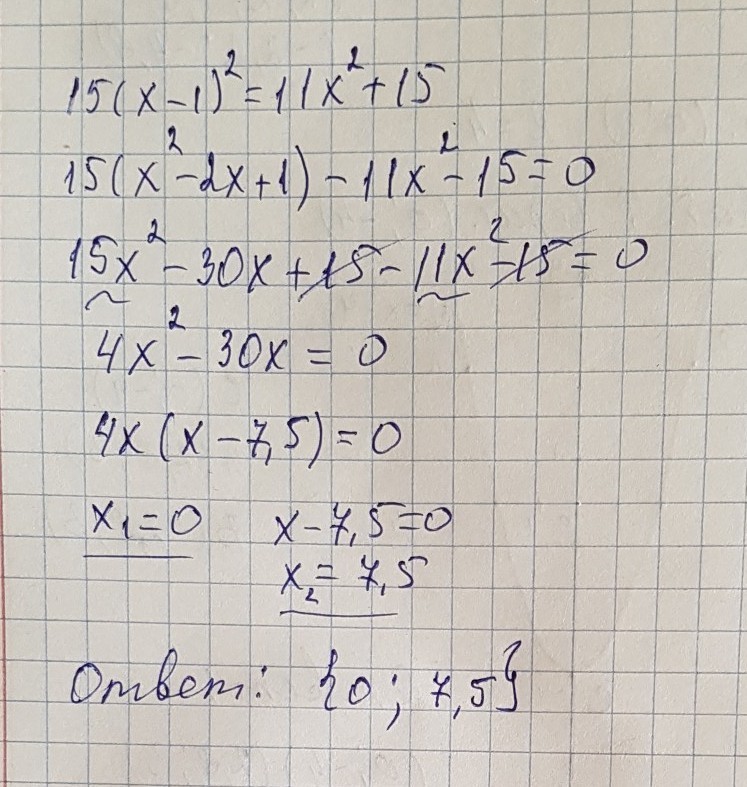 15(x-1)²=11x²+15
15(x²-2x+1)-11x²-15=0
15x²-30x+15-11x²-15=0
4x²-30x=0
4x(x-7,5)=0
x₁=0 x-7,5=0
x₂=7,5
Ответ: {0; 7,5}